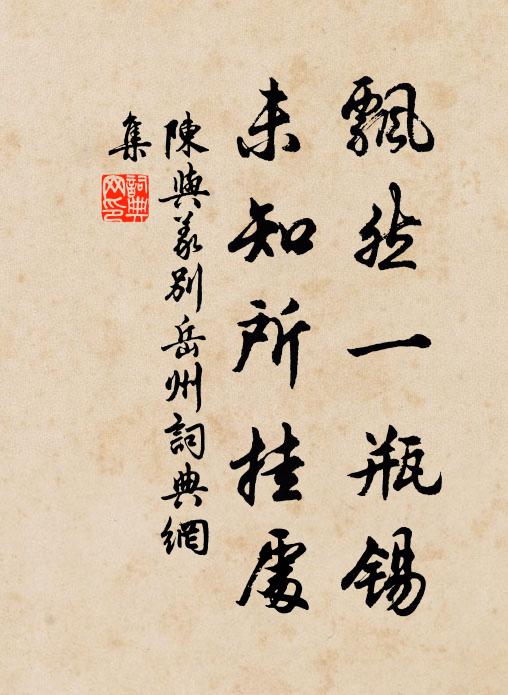 飄然一瓶錫
未知所挂處
陳與義別岳州詞典網
集
詞典網印